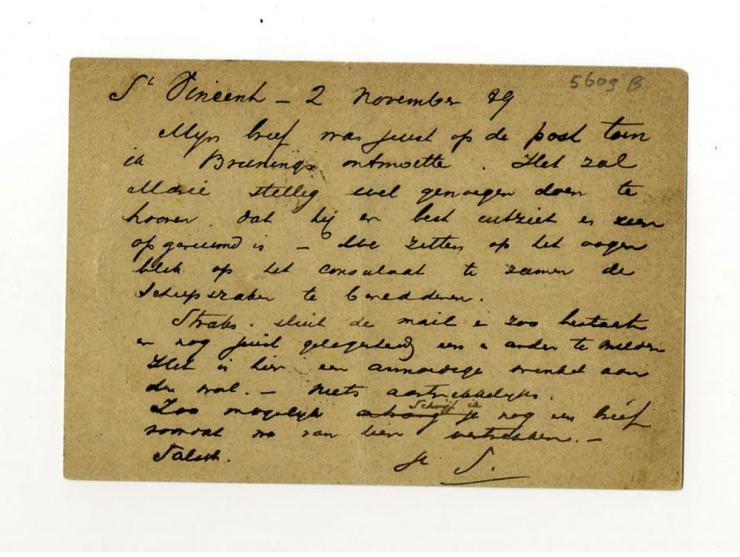 5609 B
St Vincent - 2 November 89
Mijn brief was juist op de post toen
ik Breunings ontmoette. Het zal
Marie stellig wel genoegen doen te
hooren dat hij er best uitziet en zeer
opgeruimd is - We zitten op het oogen
blik op het consulaat te zamen de
scheepszaken te beredderen.
Straks sluit de mail en zoo bestaat
er nog juist gelegenheid een en ander te melden
Het is hier een armoedige winkel aan
den wal. - Niets aantrekkelijks.
Zoo mogelijk schrijf ik je nog een brief
voordat we van hier vertrekken. -
Saluut.
S.